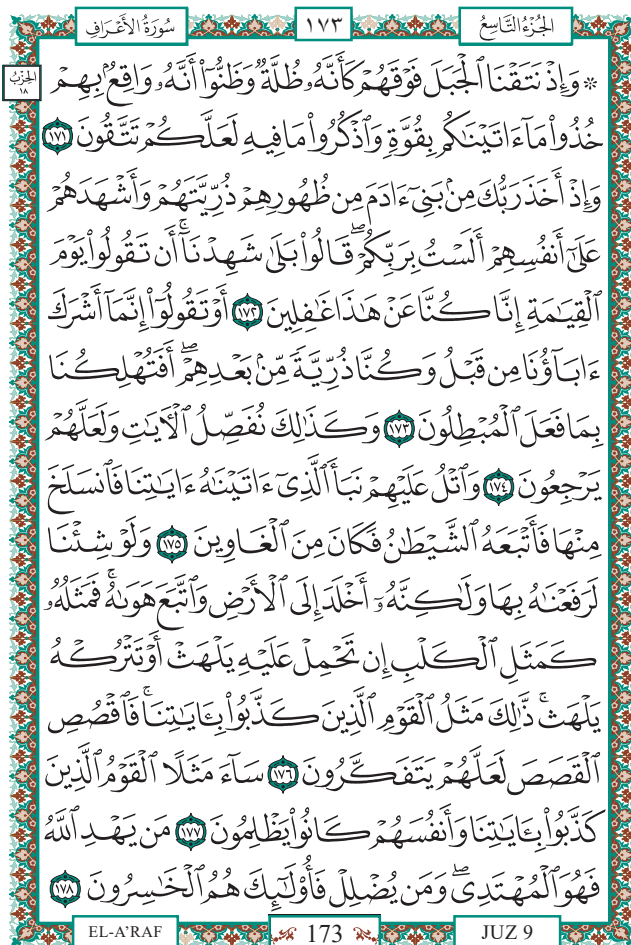 سُورَةُ الأَعْرَافِ ١٧٣ الجُزْءُ التَّاسِعُ
الحِزْبُ
١٨
۞ وَإِذْ نَتَقْنَا ٱلْجَبَلَ فَوْقَهُمْ كَأَنَّهُۥ ظُلَّةٌ وَظَنُّوٓا۟ أَنَّهُۥ وَاقِعٌۢ بِهِمْ
خُذُوا۟ مَآ ءَاتَيْنَٰكُم بِقُوَّةٍ وَٱذْكُرُوا۟ مَا فِيهِ لَعَلَّكُمْ تَتَّقُونَ ١٧١
وَإِذْ أَخَذَ رَبُّكَ مِنۢ بَنِىٓ ءَادَمَ مِن ظُهُورِهِمْ ذُرِّيَّتَهُمْ وَأَشْهَدَهُمْ
عَلَىٰٓ أَنفُسِهِمْ أَلَسْتُ بِرَبِّكُمْ ۖ قَالُوا۟ بَلَىٰ شَهِدْنَآ ۛ أَن تَقُولُوا۟ يَوْمَ
ٱلْقِيَٰمَةِ إِنَّا كُنَّا عَنْ هَٰذَا غَٰفِلِينَ ١٧٢ أَوْ تَقُولُوٓا۟ إِنَّمَآ أَشْرَكَ
ءَابَآؤُنَا مِن قَبْلُ وَكُنَّا ذُرِّيَّةً مِّنۢ بَعْدِهِمْ ۖ أَفَتُهْلِكُنَا
بِمَا فَعَلَ ٱلْمُبْطِلُونَ ١٧٣ وَكَذَٰلِكَ نُفَصِّلُ ٱلْءَايَٰتِ وَلَعَلَّهُمْ
يَرْجِعُونَ ١٧٤ وَٱتْلُ عَلَيْهِمْ نَبَأَ ٱلَّذِىٓ ءَاتَيْنَٰهُ ءَايَٰتِنَا فَٱنسَلَخَ
مِنْهَا فَأَتْبَعَهُ ٱلشَّيْطَٰنُ فَكَانَ مِنَ ٱلْغَاوِينَ ١٧٥ وَلَوْ شِئْنَا
لَرَفَعْنَٰهُ بِهَا وَلَٰكِنَّهُۥٓ أَخْلَدَ إِلَى ٱلْأَرْضِ وَٱتَّبَعَ هَوَىٰهُ ۚ فَمَثَلُهُۥ
كَمَثَلِ ٱلْكَلْبِ إِن تَحْمِلْ عَلَيْهِ يَلْهَثْ أَوْ تَتْرُكْهُ
يَلْهَث ۚ ذَّٰلِكَ مَثَلُ ٱلْقَوْمِ ٱلَّذِينَ كَذَّبُوا۟ بِـَٔايَٰتِنَا ۚ فَٱقْصُصِ
ٱلْقَصَصَ لَعَلَّهُمْ يَتَفَكَّرُونَ ١٧٦ سَآءَ مَثَلًا ٱلْقَوْمُ ٱلَّذِينَ
كَذَّبُوا۟ بِـَٔايَٰتِنَا وَأَنفُسَهُمْ كَانُوا۟ يَظْلِمُونَ ١٧٧ مَن يَهْدِ ٱللَّهُ
فَهُوَ ٱلْمُهْتَدِى ۖ وَمَن يُضْلِلْ فَأُو۟لَٰٓئِكَ هُمُ ٱلْخَٰسِرُونَ ١٧٨
EL-A'RAF 173 JUZ 9